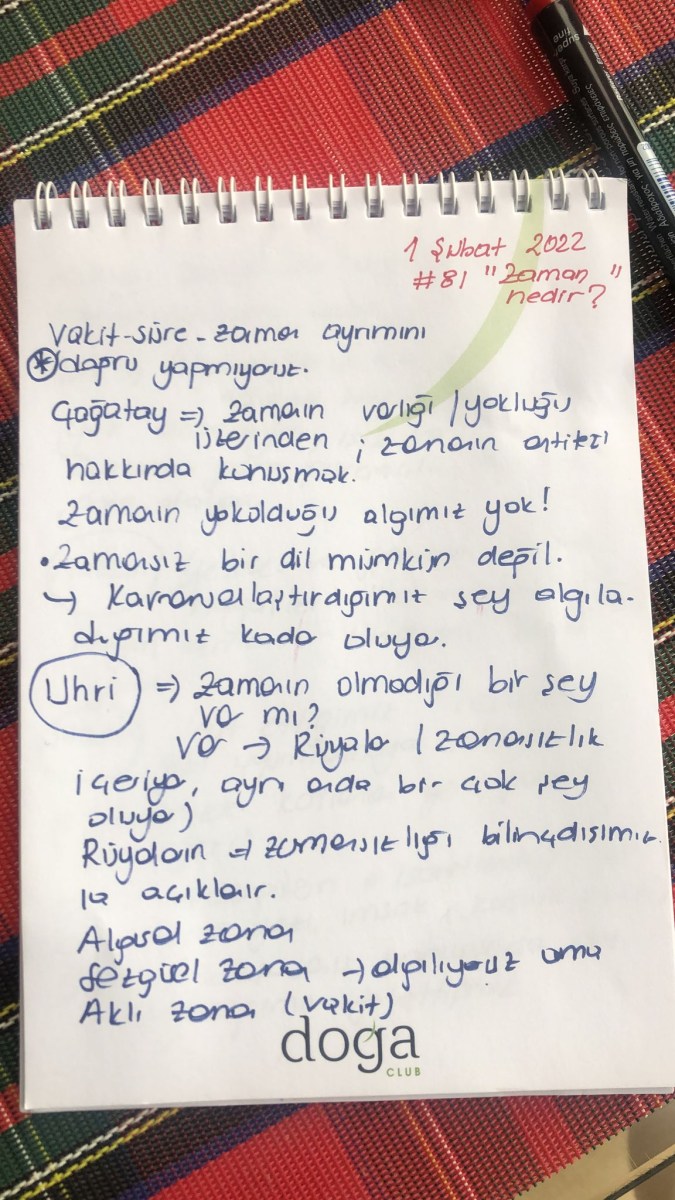 1 Şubat 2022
#81 "Zaman"
nedir?
Vakit-süre-zaman ayrımını
* doğru yapmıyoruz.
Çağatay => zamanın varlığı / yokluğu
üzerinden ; zamanın
hakkında konuşmak.
Zamanın yokolduğu algımız yok!
• Zamansız bir dil mümkün değil.
↳ Kavramsallaştırdığımız şey algıla-
dığımız kadar oluyor.
Uhri => Zamanın olmadığı bir şey
var mı?
var → Rüyalar / zamansızlık
içeriyor, aynı anda bir çok şey
oluyor)
Rüyaların => zamansızlığı bilinçdışımız
la açıklanır.
Algısal zaman
Sezgisel zaman → algılıyoruz ama
Aklı zaman (vakit)
doğa
CLUB
super
fine